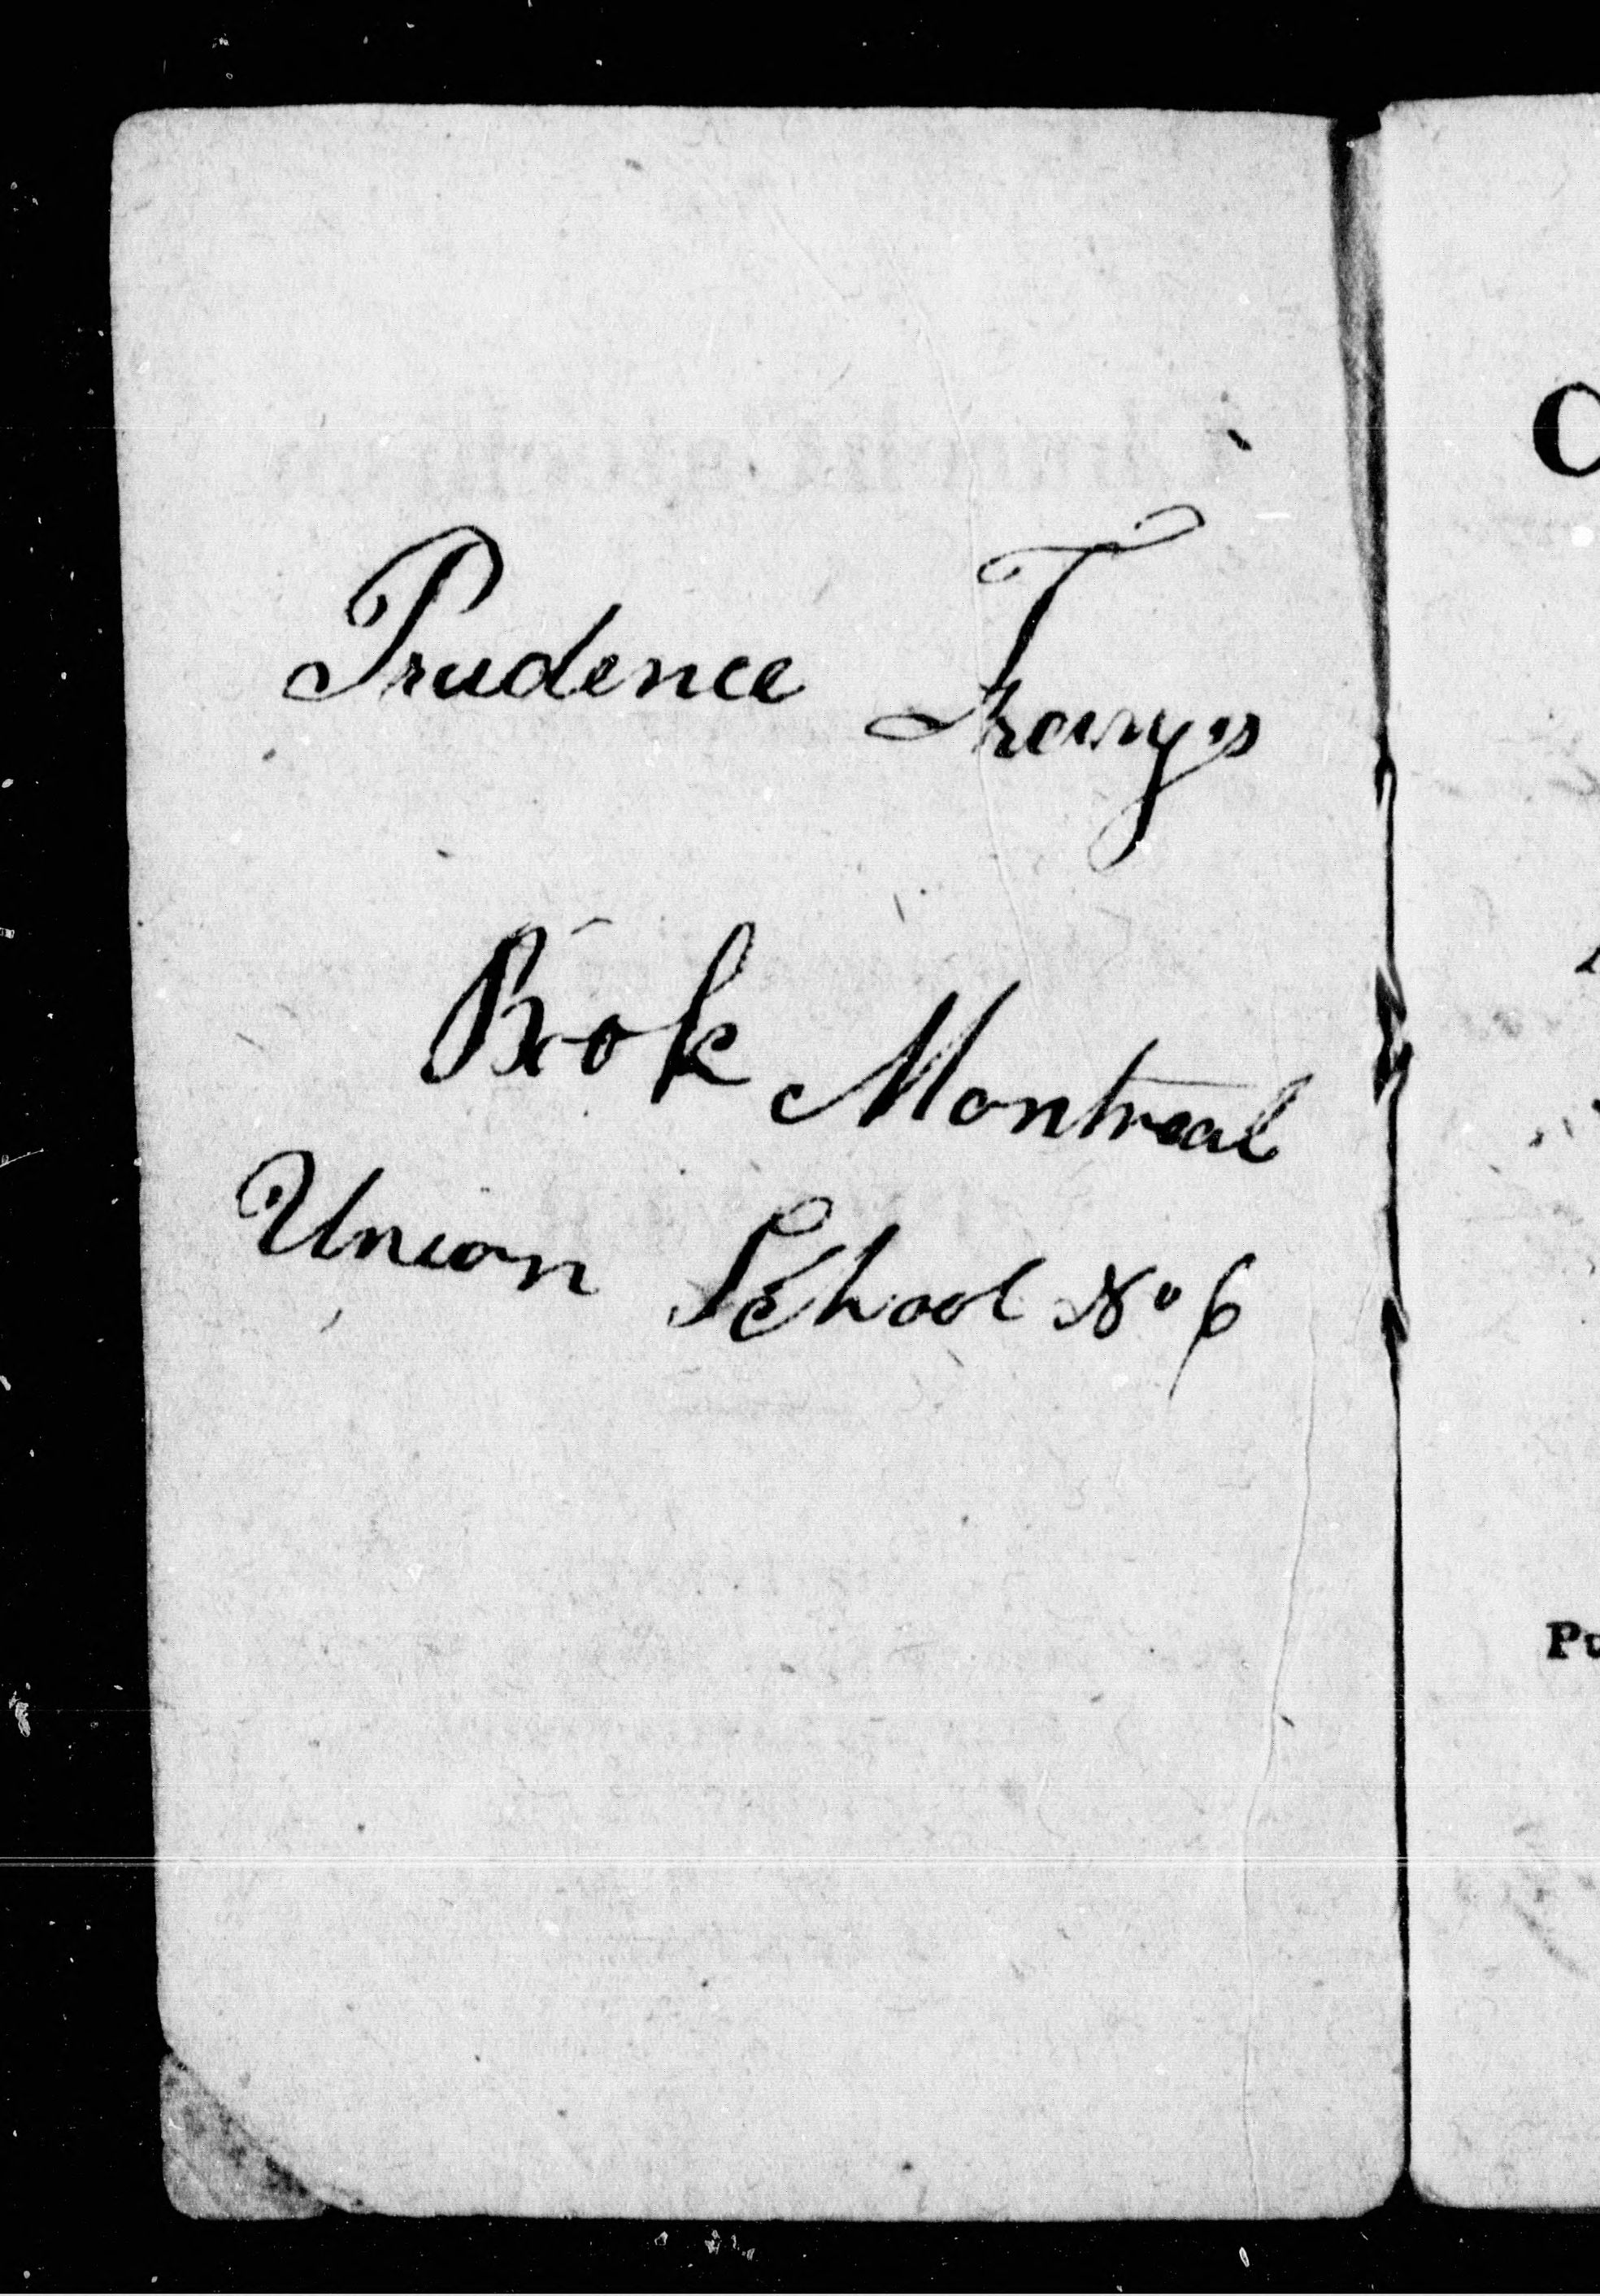 Prudence Frary's
Book Montreal
Union School No 6
C
Pu